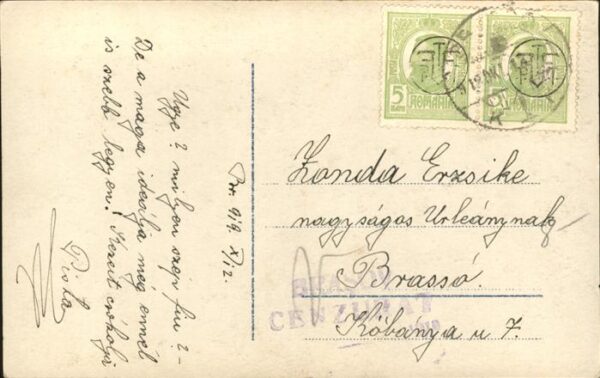 Ugye? milyen szép fiu? –
De a maga ideálja még ennél
is szebb legyen. Szeretettel csókolja
Piroska
Br. 919. X/12.
5 BANI ROMANIA 5
Zonda Erzsike
nagyságos Urleánynak
Brassó.
Kőbánya u 7.
BRASOV
CENZURAT